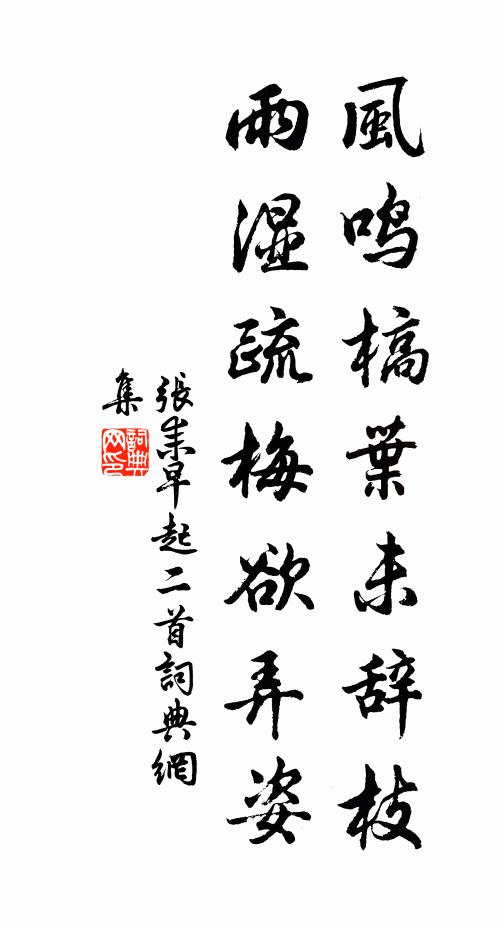 風鸣槁葉未辞枝
雨湿疏梅欲弄姿
張耒早起二首詞典網
集
詞典
网印